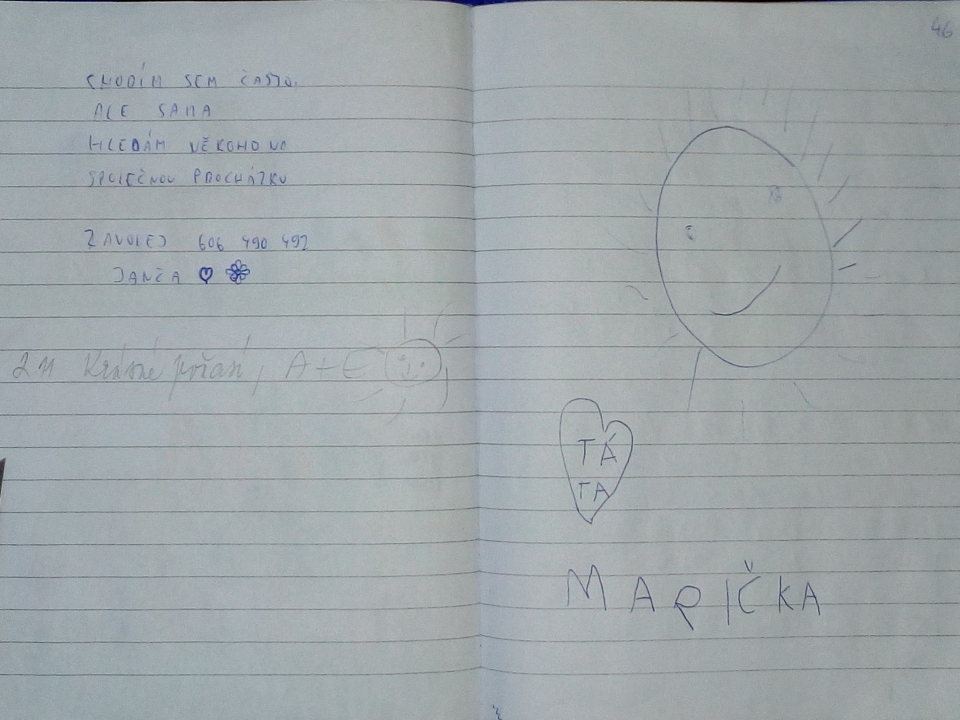 CHODÍM SEM ČASTO.
ALE SAMA
HLEDÁM NĚKOHO NA
SPOLEČNOU PROCHÁZKU
ZAVOLEJ 606 490 492
JANČA
Krásné počasí, A+E
46
TÁ
TA
MARIČKA